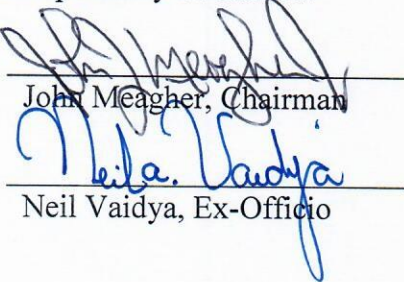 John Meagher
John Meagher, Chairman
Neil a. Vaidya
Neil Vaidya, Ex-Officio